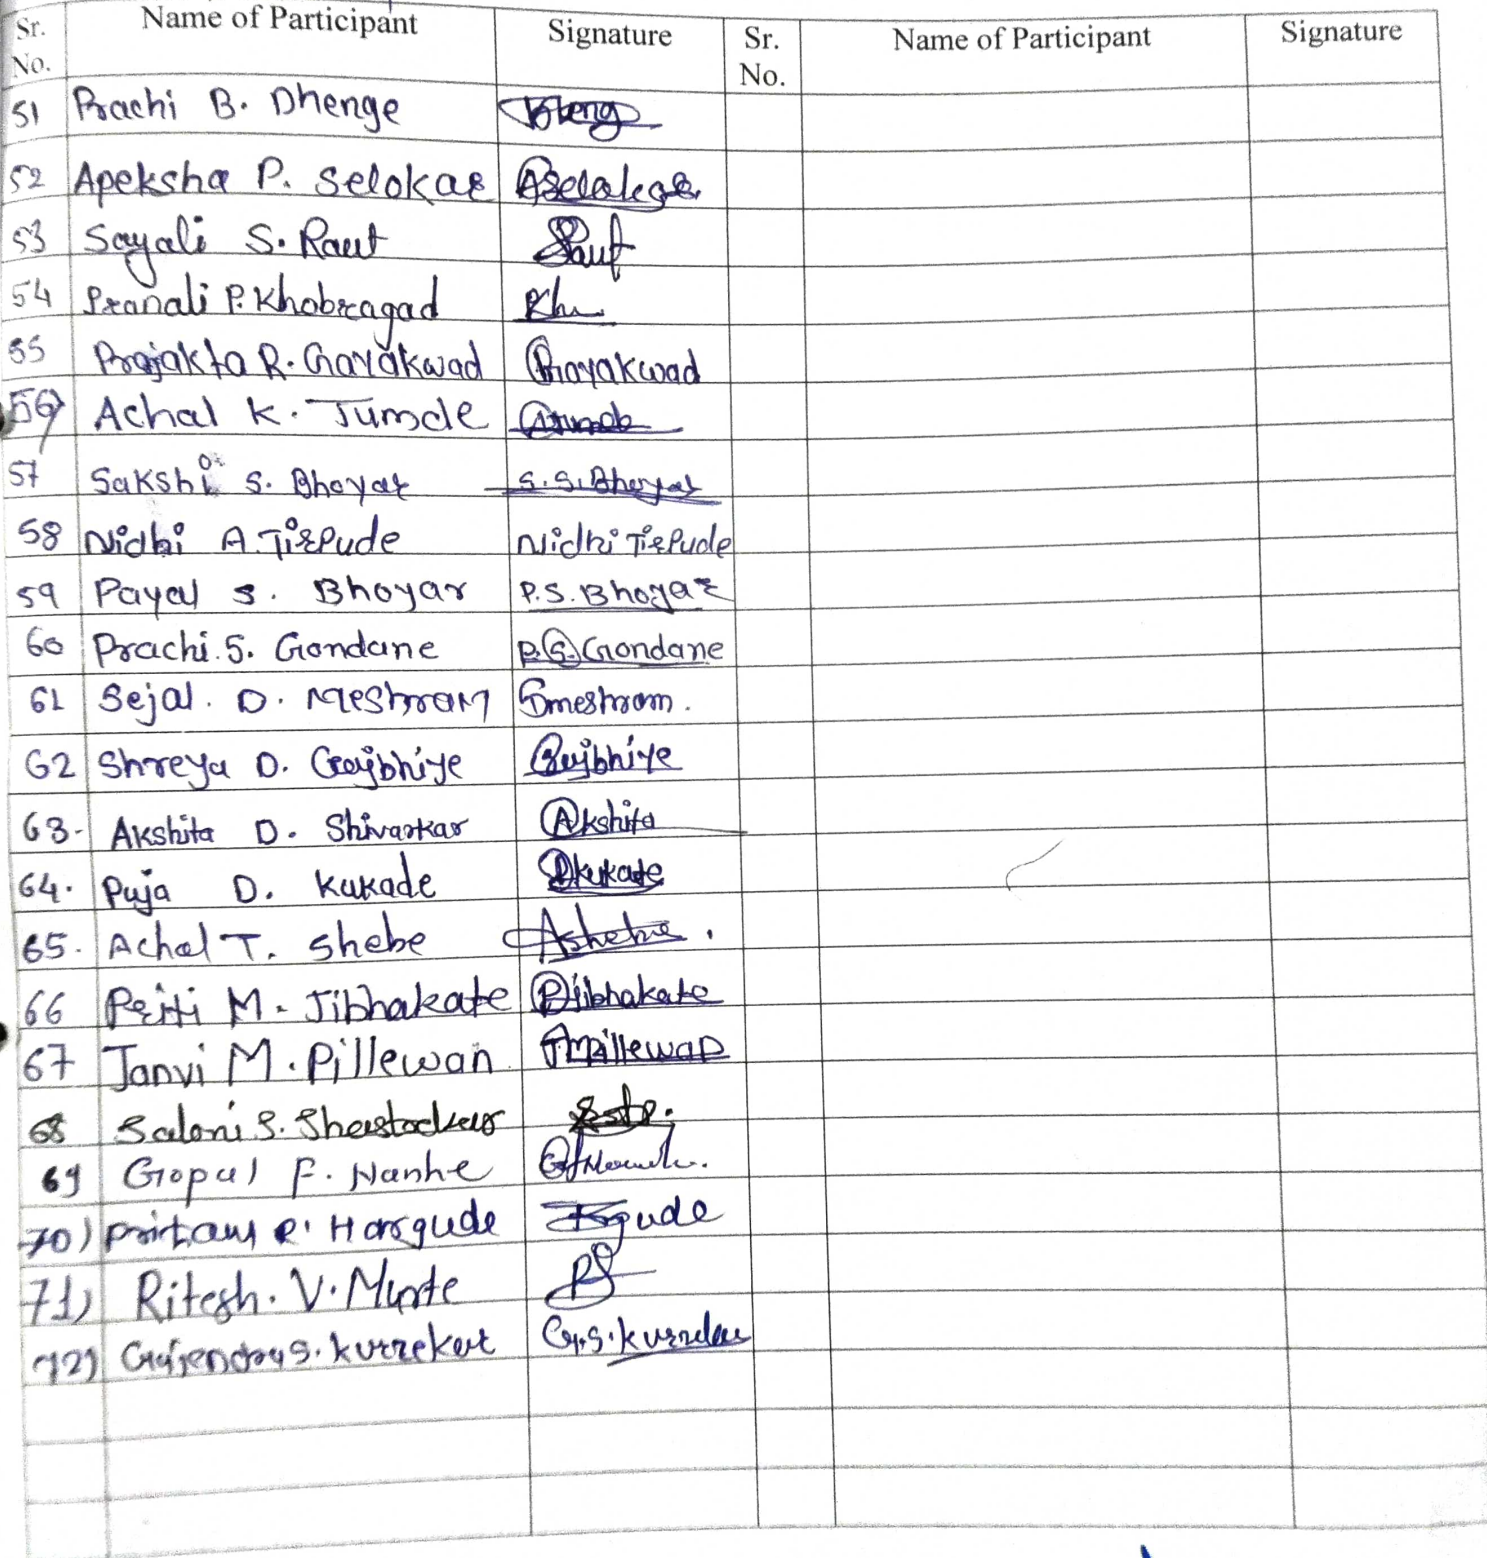 Sr. No. Name of Participant Signature Sr. No. Name of Participant Signature
51 Prachi B. Dhenge
52 Apeksha P. Selokar Aselokar
53 Sayali S. Raut Raut
54 Pranali P. Khobragad Kh
55 Prajakta R. Gayakwad Gayakwad
56) Achal K. Jumde
57 Sakshi S. Bhoyar S.S.Bhoyar
58 Nidhi A. Tirpude Nidhi Tirpude
59 Payal S. Bhoyar P.S.Bhoyar
60 Prachi.S. Gondane P.G.Gondane
61 Sejal. D. Meshram Smeshram.
62 Shreya D. Gajbhiye Gajbhiye
63. Akshita D. Shivarkar Akshita
64. Puja D. Kukade Dkukade
65. Achal T. Shebe Ashebe.
66 Priti M. Jibhakate Pjibhakate
67 Janvi M. Pillewan Jmpillewan
68 Saloni S.
69 Gopal F. Nanhe
70) Pritam R. Hargude
71) Ritesh. V. Murte
72) Gajendra S. Kurzekar G.S.